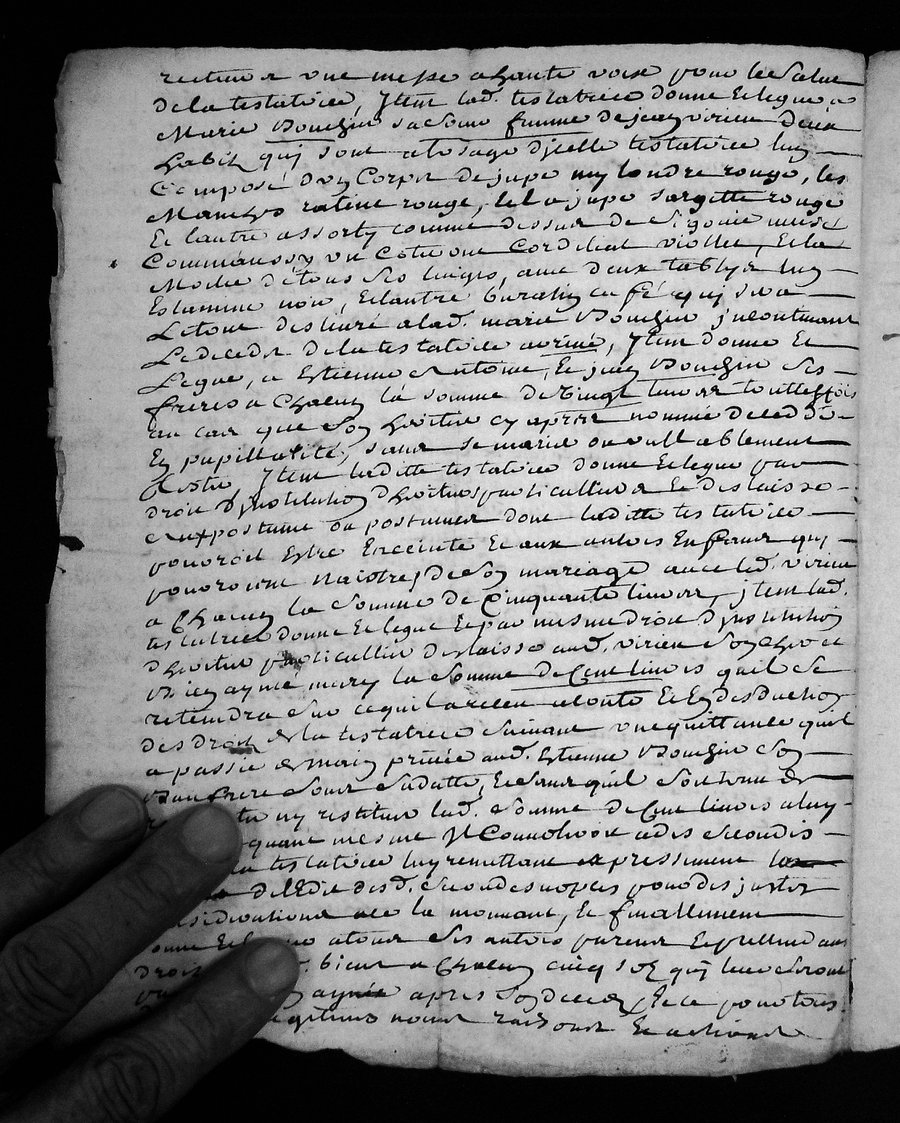 une messe a haute voix pour le salut
de la testatrice, Item lad. testatrice donne et legue a
Marie Bouchin sa soeur femme de jean virieu deux
habitz quj sont a lusage d'jcelle testatrice luy
Composé d'un Corps de jupe my londre rouge, les
Manches ratine rouge, et la jupe sargette rouge
Et lautre assorty comme dessus de
un Cotillon Cordilliat viollet, Et la
Motié de tous ses linges, avec deux tabliers luy
Estamine noir, et lautre burattin quj sera
Le tout deslivré a lad. marie Bouchin jncontinant
Le deces de la testatrice arrivé, Item donne Et
Legue, a Estienne Antoine, Et jean Bouchin ses
freres a Chacun la somme de Vingt livres touttesfois
au cas que son heritier cy apres nommé decedde
En pupillarité, sans se marier ou vallablement
tester, Item laditte testatrice donne Et legue par
droit d'jnstitution d'heritiers particulliers Et deslaisse
aux postume ou postumes dont laditte testatrice
pourroit Estre Enceinte Et aux autres Enfans quj
pourroient naistre, de son mariage avec led. virieu
a Chacun la somme de Cinquante livres, jtem lad.
testatrice donne Et legue Et par mesme droit d'jnstitution
d'heritier particullier deslaisse aud. virieu son cher et
bien aymé mary la somme de Cent livres quil se
retiendra sur ce quil a receu a conte Et En deduction
des droits de la testatrice suivant une quittance quil
a passée de main privée aud. Estienne Bouchin son
beau frere sous sa datte, Et sans quil soit tenu de
ny restituer lad. somme de Cent livres a luy
quant mesme Il Convoleroit a des secondes
testatrice luy remettant expressement la
de l'Edit desd. secondes nopces pour des justes
considerations a ce la mouvant, Et finallement
donne Et legue a tous ses autres parens Et pretendans
droit biens a Chacun cinq solz quj leur seront
apres son deces, Et ce pour tous
legitimes noms raisons Et actions